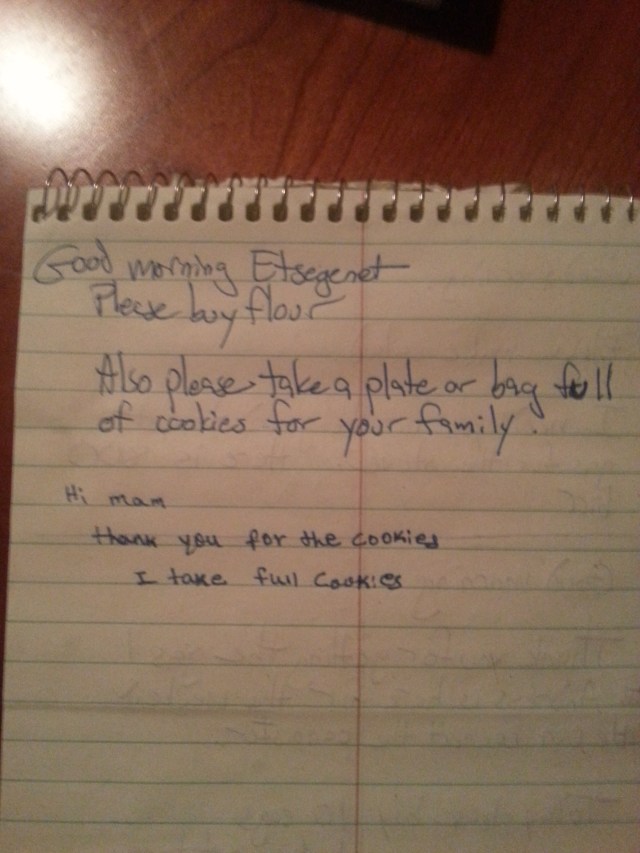 Good morning Etsegenet
Please buy flour
Also please take a plate or bag full
of cookies for your family.
Hi mam
thank you for the cookies
I take full cookies